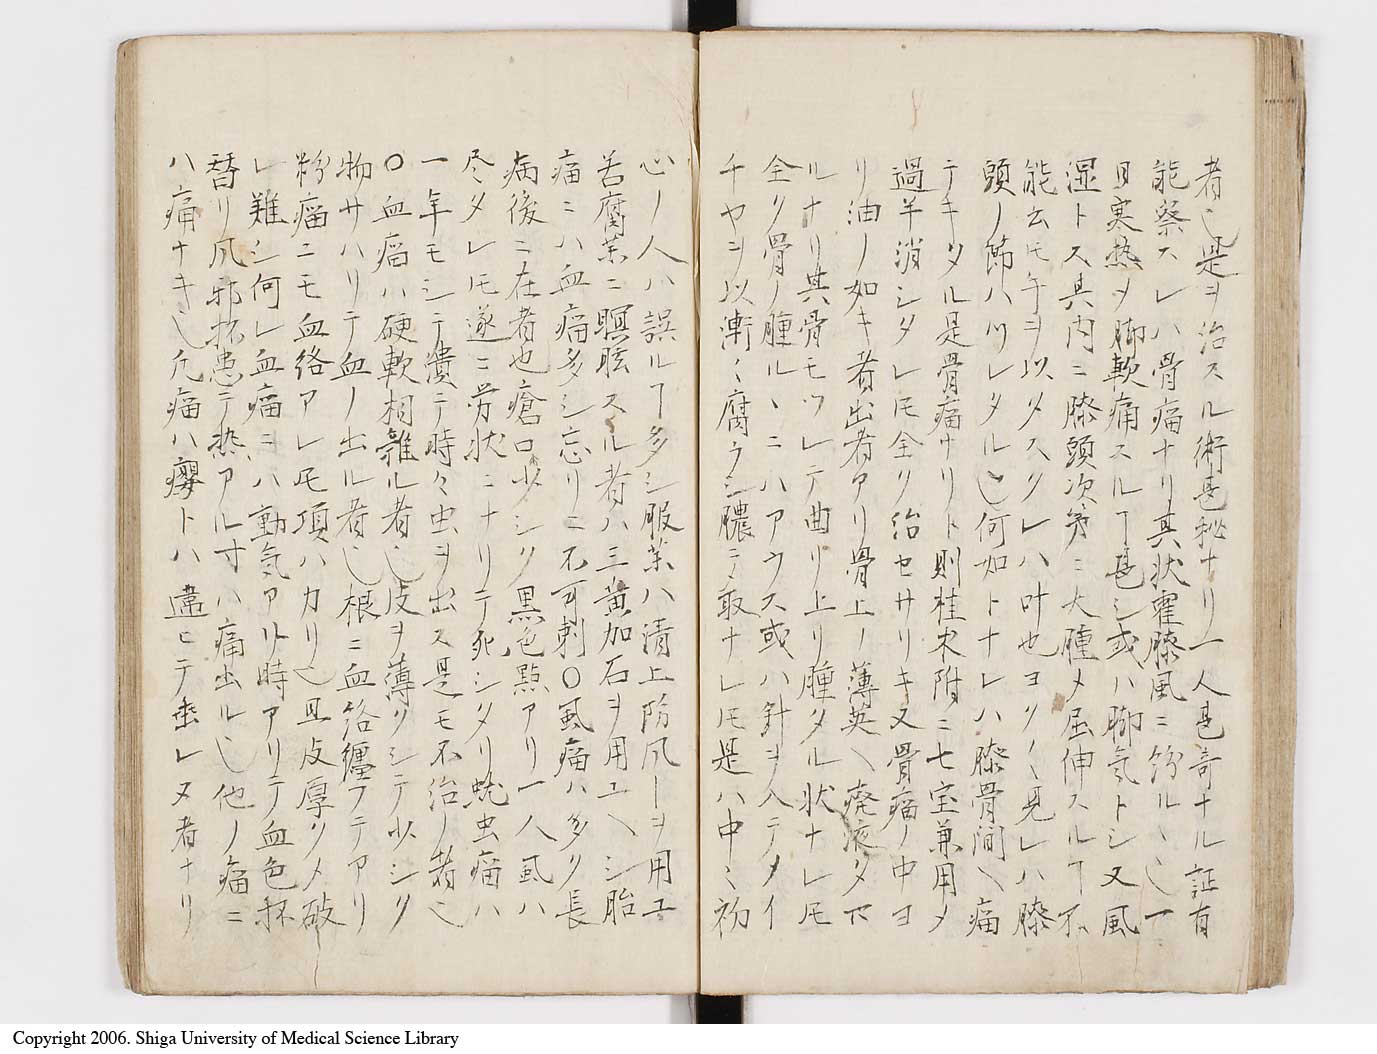 者也是ヲ治スル術甚秘ナリ一人甚奇ナル証有
能察スレハ骨瘤ナリ其状霍膝風ニ紛ルヽ也一
日寒熱ヲ脚軟痛スルヿ甚シ或ハ脚気トシ又風
湿トス其内ニ膝頭次第ニ大腫メ屈伸スルヿ不
能去ヒ午ヲ以タスクレハ叶也ヨク〱見レハ膝
頭ノ節ハツレタル也何如トナレハ膝骨間ヘ瘤
テキタル是骨瘤ナリト則桂朮附ニ七宝兼用メ
過半消シタレ𪜈全ク治セサリキ又骨瘤ノ中ヨ
リ油ノ如キ者出者アリ骨上ノ薄英ヘ廃液タマ
ルナリ其骨モツレテ曲リ上リ腫タル状ナレ𪜈
全ク骨ノ腫ルヽニハアラス或ハ針ヲ入テメイ
チヤヲ以漸〱腐ラシ膿ニテ取ナレ𪜈是ハ中〱初
心ノ人ハ誤ルヿ多シ服薬ハ漬上防風一ヲ用ユ
若腐薬ニ瞑眩スル者ハ三黄加石ヲ用ユヘシ胎
瘤ニハ血瘤多シ忘リニ不可刺○風瘤ハ多ク長
病後ニ在者也瘡口少シク黒色點アリ一人風ハ
尽タレ𪜈遂ニ労状ニナリテ死シタリ蚘虫瘤ハ
一年モシテ潰テ時々虫ヲ出ス是モ不治ノ者也
○血瘤ハ硬軟相雑ル者也皮ヲ薄クシテ少シク
物サハリテ血ノ出ル者也根ニ血絡纏フテアリ
粉瘤ニモ血絡アレ𪜈項ハカリ也且皮厚クメ破
レ難シ何レ血瘤ニハ動気アリ時アリテ血色抔
替リ風邪抔患テ熱アル寸ハ痛出ル也他ノ瘤ニ
ハ痛ナキ也凡瘤ハ癭トハ違ヒテ垂レヌ者ナリ
Copyright 2006. Shiga University of Medical Science Library